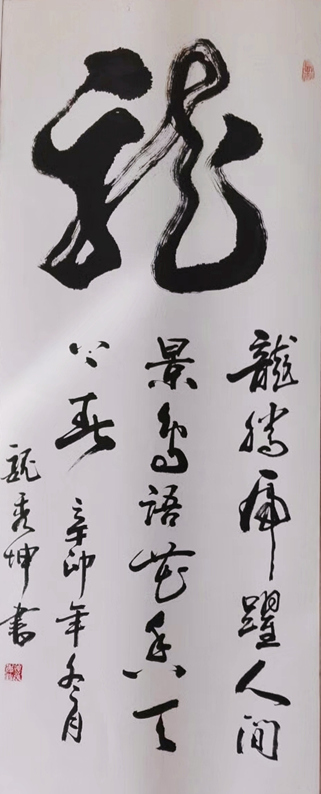 龍
龍騰虎躍人間
景鳥語花香天
下春
辛卯年冬月
龍秀坤書